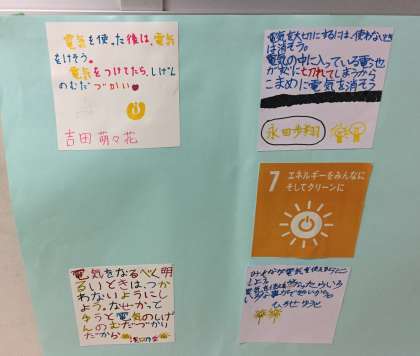 電気を使った後は、電気
をけそう。
電気をつけてたら、しげん
のむだづかい
吉田萌々花
電気を大切にするには、使わないときは
は消そう。
電気の中に入っている電ち
がすぐに切れてしまうから
こまめに電気を消そう
永田歩翔
7 エネルギーをみんなに
そしてクリーンに
電気をなるべく明
るいときは、つか
わないようにしよ
う。なぜかって
ゆうと電気のしげ
んのむだづかりり
だから
みんなが電気を使えるように
しよう